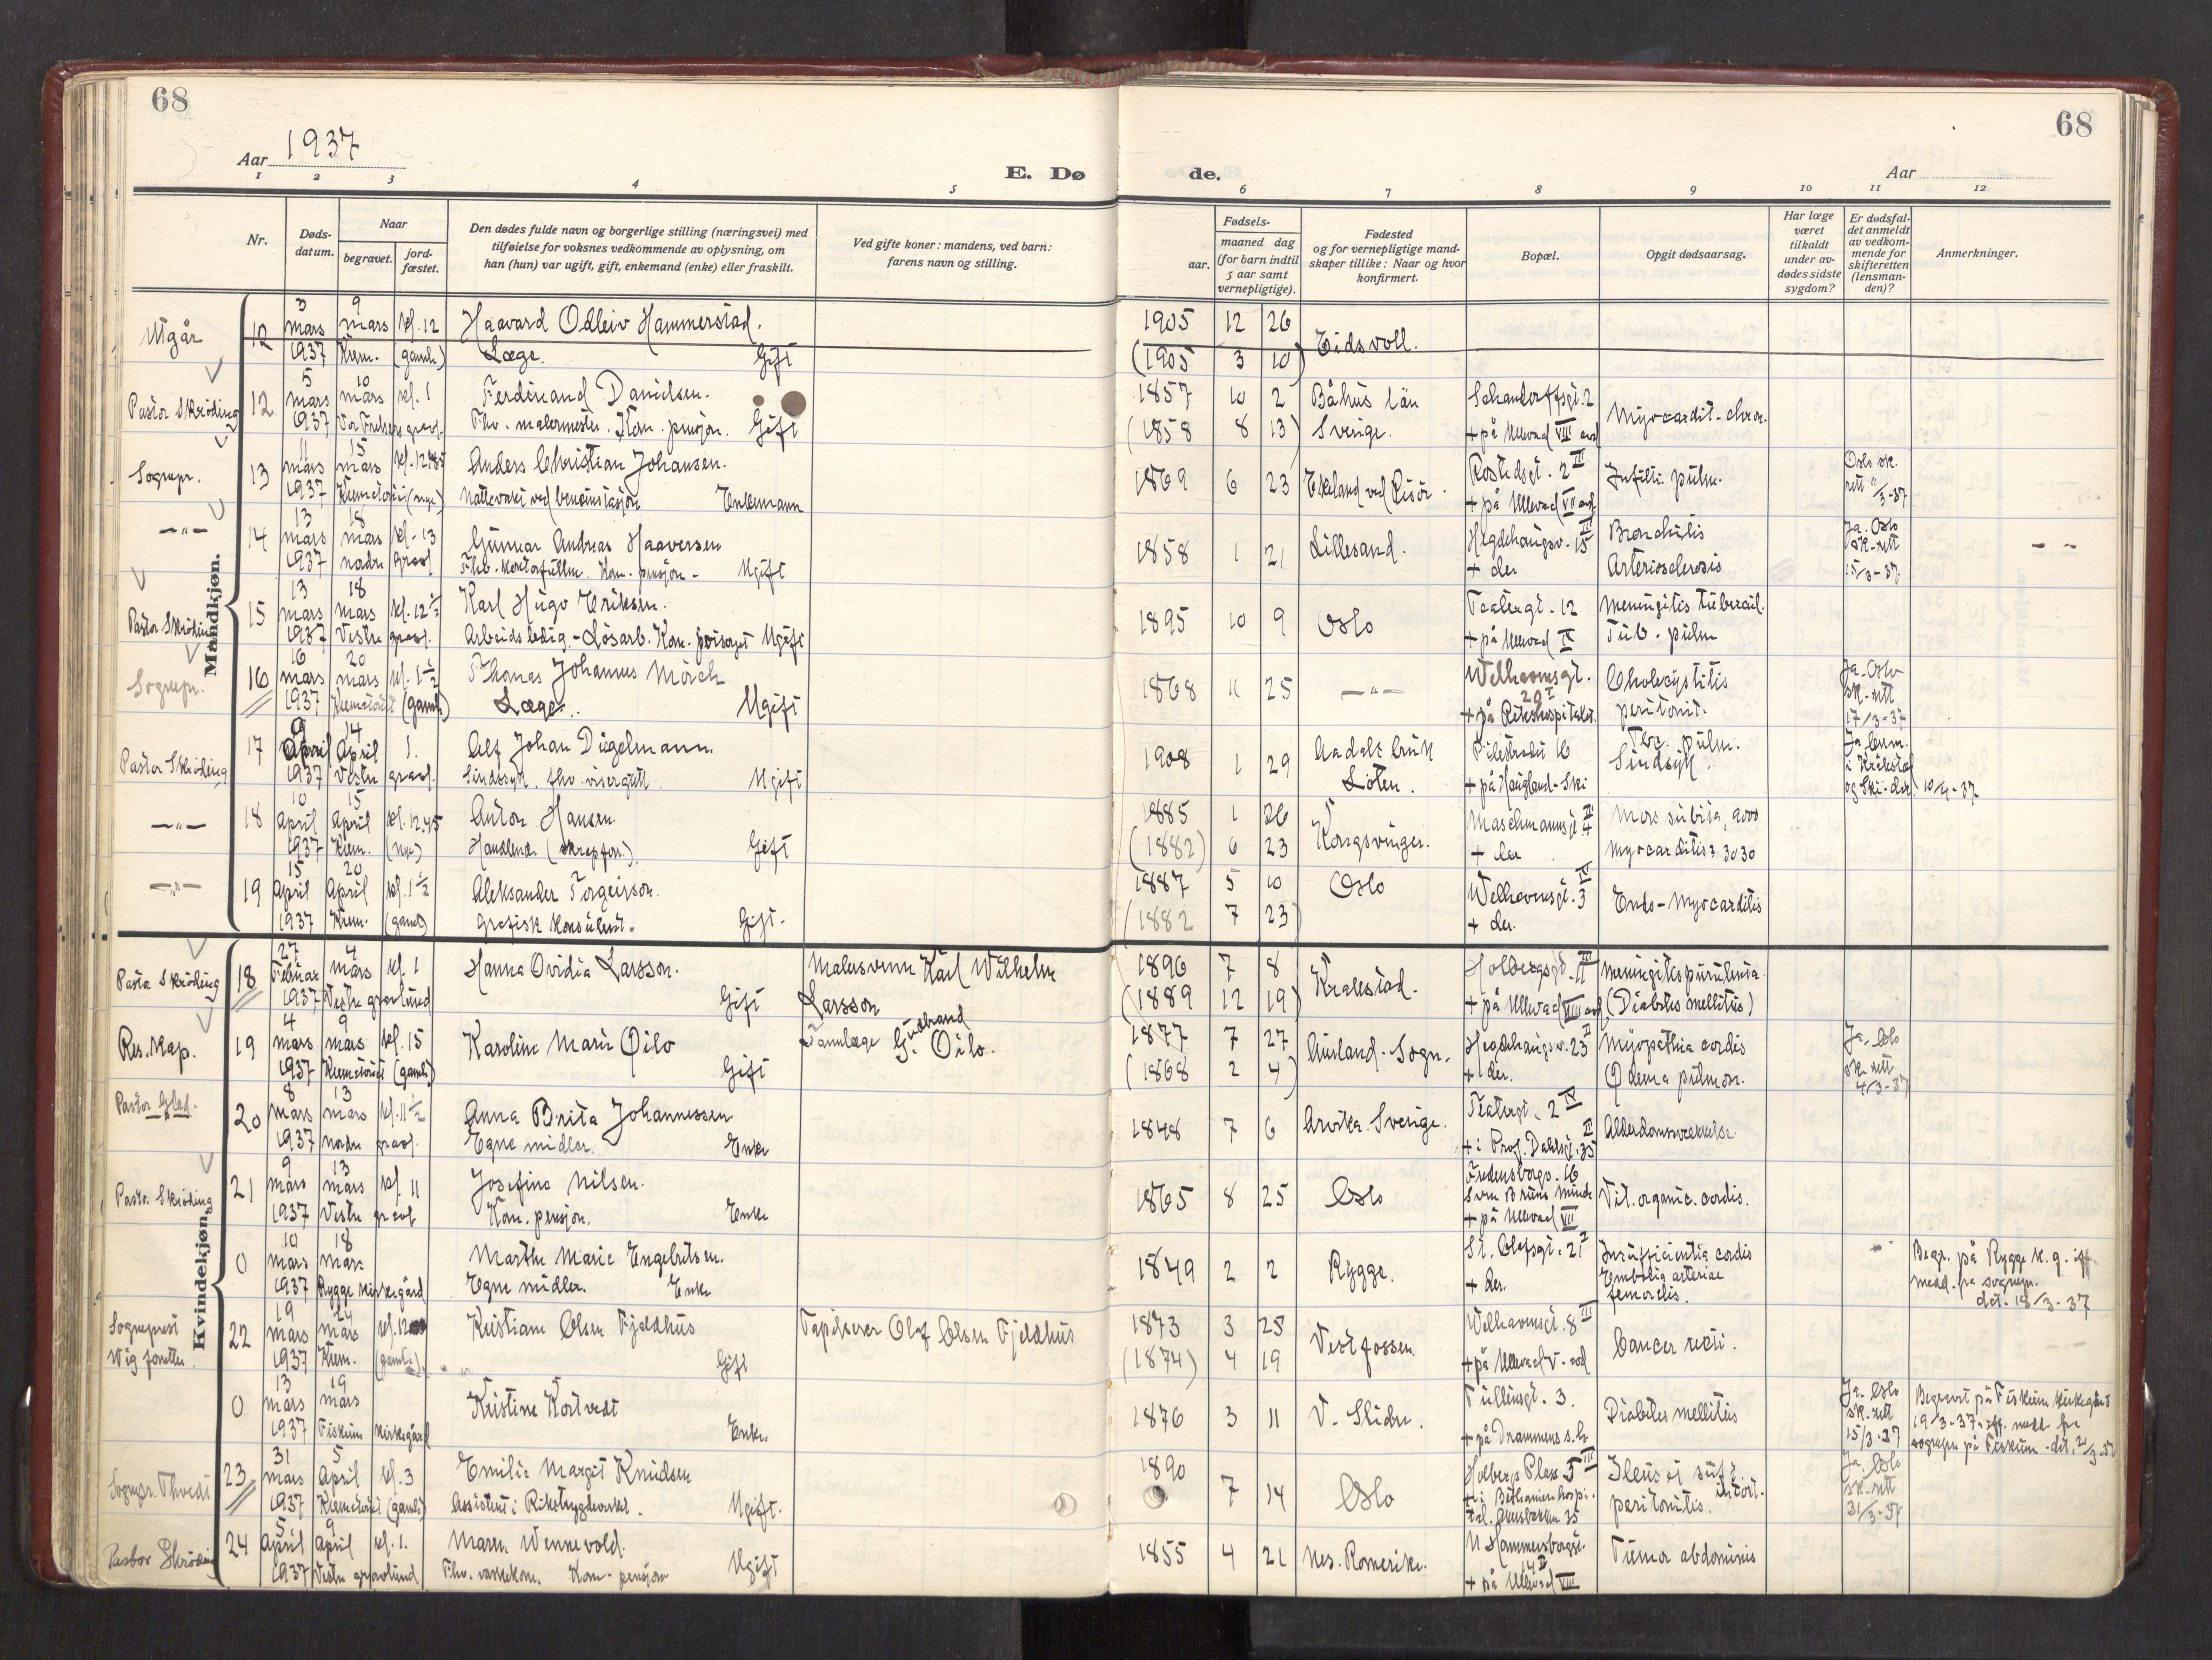 68
68
Aar 1937
E. Døde.
Aar
1 2 3 4 5 6 7 8 9 10 11 12
Nr.
Døds-
datum.
Naar
begravet.
jord-
fæstet.
Den dødes fulde navn og borgerlige stilling (næringsvei) med
tilføielse for voksnes vedkommende av oplysning, om
han (hun) var ugift, gift, enkemand (enke) eller fraskilt.
Ved gifte koner: mandens, ved barn:
farens navn og stilling.
Fødsels-
aar.
maaned dag
(for barn indtil
5 aar samt
vernepligtige).
Fødested
og for vernepligtige mand-
skaper tillike: Naar og hvor
konfirmert.
Bopæl.
Opgit dødsaarsag.
Har læge
været
tilkaldt
under av-
dødes sidste
sygdom?
Er dødsfal-
det anmeldt
av vedkom-
mende for
skifteretten
(lensman-
den)?
Anmerkninger.
Mandkjøn.
3 9
Utgår 12 mars mars kl. 12 Haavard Odleiv Hammerstad. 1905 12 26 Eidsvoll.
1937 Krem. (gamle) Læge. Gift (1905 3 10)
5 10
Pastor Skröding 12 mars mars kl. 1 Ferdinand Danielsen. 1857 10 2 Båhus län Schandorffsgt. 2 Myocardit-chron.
1937 Vor Frelsers gravl. Fhv. malermester. Kom. pensjon. Gift (1858 8 13) Sverige. + på Ullevaal VIII avd
11 15
Sognepr. 13 mars mars kl. 12.45 Anders Christian Johansen. 1869 6 23 Ekeland ved Risör. Rostedsgt. 2 III Infiltr. pulm. Oslo sk.
1937 Krematoriet (nye) Nattevakt ved bensinstasjon Enkemann + på Ullevaal VII avd. rett 11/3-37
13 18
—"— 14 mars mars kl. 13 Gunnar Andreas Haaversen 1858 1 21 Lillesand. Hegdehaugsv. 15 II Bronchitis Ja. Oslo
1937 nordre gravl Fhv. kontorfullm. Kom. pensjon - Ugift + der Arteriosclerosis sk-rett
15/3-37.
13 18
Pastor Skröding 15 mars mars kl. 12½ Karl Hugo Eriksen. 1895 10 9 Oslo Teatergt. 12 Meningitis tubercul.
1937 Vestre gravl. Arbeidsledig - Lösarb. Kom. forsorget Ugift + på Ullevaal IX Tub. pulm
16 20
Sognepr. 16 mars mars kl. 1½ Thomas Johannes Mörch 1868 11 25 —"— Welhavensgt. Cholecystitis Ja. Oslo
1937 Krematoriet (gamle) Læge. Ugift 20 I peritonit. sk-rett
+ på Rikshospitalet. 17/3-37
9 14
Pastor Skröding 17 April April 1. Alf Johan Diegelmann. 1908 1 29 Aadals bruk Pilestredet 16 Tbc. pulm. Ja. lensm.
1937 Vestre gravl. Sindssyk. fhv. visergutt Ugift Löten. + på Haugland-Ski Sindsyk. i Kråkstad
og Ski-dat. 10/4-37
10 15
—"— 18 April April kl. 12.45 Anton Hansen. 1885 1 26 Kongsvinger. Maschmannsgt. 4 II Mors subita, 9000
1937 Krem. (nye) Handlende (skrapforr.). Gift (1882) 6 23 + der Myocarditis? 3030
15 20
—"— 19 April April kl. 1½ Aleksander Torgeirson. 1887 5 10 Oslo Welhavensgt. 3 IV Endo-Myocarditis
1937 Krem. (gamle) Grafisk konsulent. Gift. (1882 7 23) + der.
Kvindekjøn.
27 4
Pastor Skröding 18 Februar mars kl. 1 Hanna Ovidia Larsson. Malersvenn Karl Wilhelm 1896 7 8 Krakstad. Holbergsgt. 11 III Meningitis purulenta.
1937 Vestre gravlund Gift Larsson (1889 12 19) + på Ullevaal VIII avd (Diabetes mellitus)
4 9
Res. Kap. 19 mars mars kl. 15 Karoline Marie Öilo Tannlæge Gudbrand Öilo. 1877 7 27 Aurland. Sogn. Hegdehaugsv. 23 II Myopathia cordis Ja. Oslo
1937 Krematoriet (gamle) Gift (1868 2 4) + der. Ödema pulmon. sk-rett
4/3-37
8 13
Pastor Gled. 20 mars mars kl. 11½ Anna Brita Johannessen 1848 7 6 Arvika. Sverige. Teatergt. 2 IV Alderdomssvækkelse
1937 nordre gravl. Egne midler. Enke + i Prof. Dahlsgt. 35 II
9 13
Pastor Skröding 21 mars mars kl. 11 Josefine Nilsen. 1865 8 25 Oslo Fredensborgv. 16 Vit. organic. cordis.
1937 Vestre gravl Kom. pensjon. Enke Sven Bruns Minde
+ på Ullevaal VII
10 18
0 mars mars Marthe Marie Engebretsen. 1849 2 2 Rygge. St. Olafsgt. 21 I Insufficientia cordis Begr. på Rygge k. g. iflg.
1937 Rygge kirkegård Egne midler. Enke + der. Embolia arteriae medd. fra sognepr.
femoralis. dat. 18/3-37
19 24
Sogneprest 22 mars mars kl. 12 Kristiane Olsen Fjeldhus Tapetserer Olaf Olsen Fjeldhus 1873 3 25 Vestfossen. Welhavensgt. 8 III Cancer recti.
Wig forretter. 1937 Krem. (gamle) Gift (1874) 4 19 + på Ullevaal V-avd
13 19
0 mars mars Kristine Kortvedt 1876 3 11 V. Slidre. Tullinsgt. 3. Diabetes mellitus Ja. Oslo Begravet på Fiskum kirkegård
1937 Fiskum kirkegård Enke. + på Drammens s.h. sk-rett 19/3-37. iflg. medd. fra
15/3-37 sognepr. på Fiskum - dat. 2/3-37
31 5
Sognepr. Thvedt 23 mars April kl. 3 Emilie Margit Knudsen 1890 7 14 Oslo Holbergs Plass 5 III Ileus Ja. Oslo
1937 Krematoriet (gamle) Assistent i Rikstrygdeverket. Ugift. + i Bethanien hospi- peritonitis. sk-rett
tal. 31/3-37
5 9
Pastor Skröding 24 April April kl. 1. Maren Wennevold. 1855 4 21 Nes. Romerike. Hammersborggt. Tumor abdominis
1937 Vestre gravlund Fhv. vaskekone. Kom-pensjon Ugift 14 II
+ på Ullevaal VIII